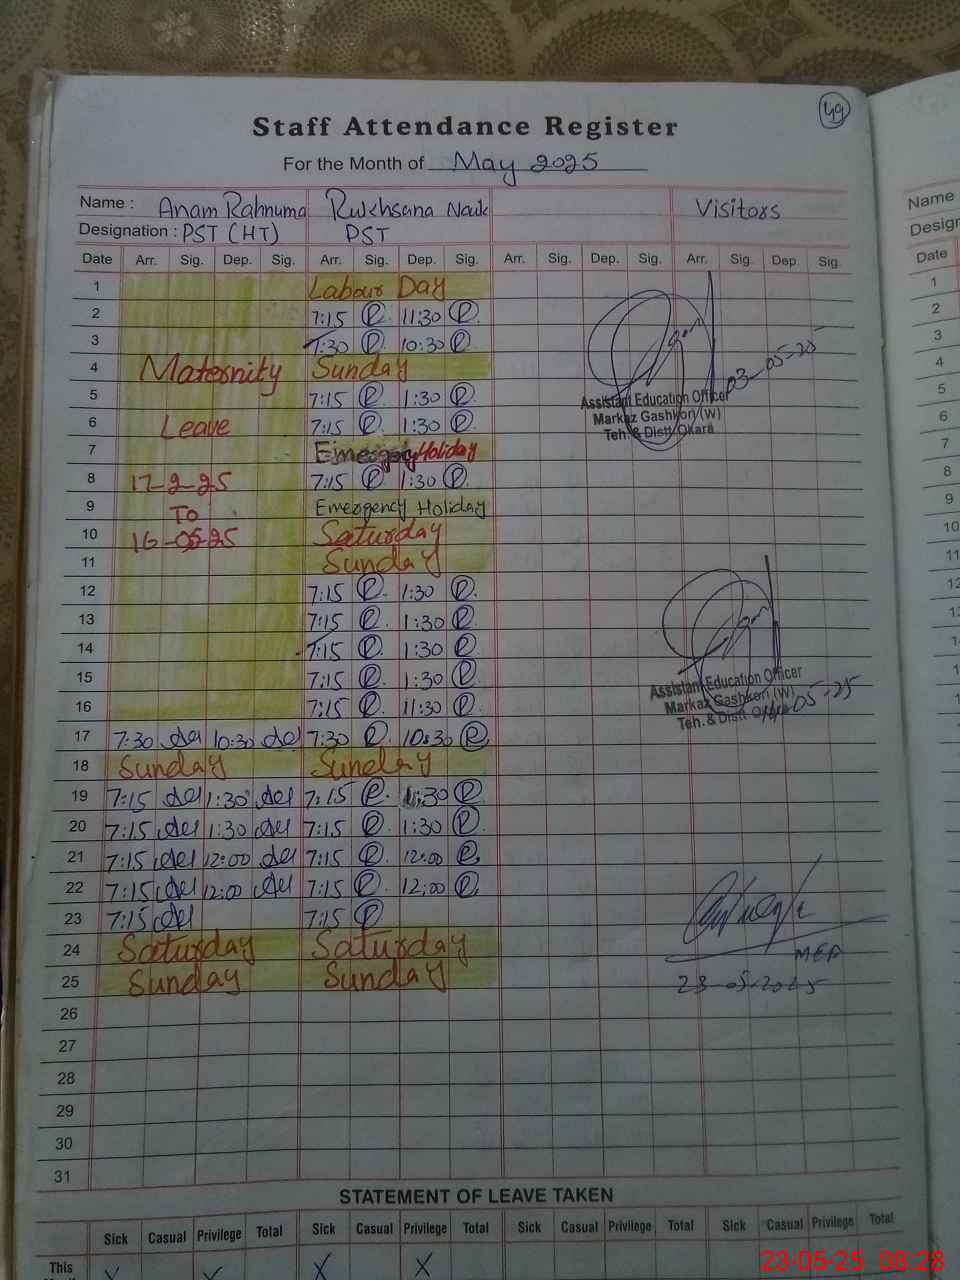 49
Staff Attendance Register
For the Month of May 2025
Name : Anam Rahnuma Rukhsana Visitors
Designation : PST (HT) PST
Date Arr. Sig. Dep. Sig. Arr. Sig. Dep. Sig. Arr. Sig. Dep. Sig. Arr. Sig. Dep. Sig.
1 Labour Day
2 7:15 R 11:30 R
3 7:30 R 10:30 R
4 Maternity Sunday 03-05-25
5 7:15 R 1:30 R Assistant Education Officer
6 Leave 7:15 R 1:30 R Markaz Gashkori (W)
Teh. & Distt Okara
7 Emergency Holiday
8 17-2-25 7:15 R 1:30 R
9 To Emergency Holiday
10 16-05-25 Saturday
11 Sunday
12 7:15 R 1:30 R
13 7:15 R 1:30 R
14 7:15 R 1:30 R
15 7:15 R 1:30 R Assistant Education Officer
16 7:15 R 11:30 R Markaz Gashkori (W)
Teh. & Distt 05-25
17 7:30 10:30 7:30 R 10:30 R
18 Sunday Sunday
19 7:15 1:30 7:15 R 1:30 R
20 7:15 1:30 7:15 R 1:30 R
21 7:15 12:00 7:15 R 12:00 R
22 7:15 12:00 7:15 R 12:00 R
23 7:15 7:15 R
24 Saturday Saturday MEA
25 Sunday Sunday 23-05-2025
26
27
28
29
30
31
STATEMENT OF LEAVE TAKEN
Sick Casual Privilege Total Sick Casual Privilege Total Sick Casual Privilege Total Sick Casual Privilege Total
This X X
23-05-25 08:28
Name
Design
Date
1
2
3
4
5
6
7
8
9
10
11
12